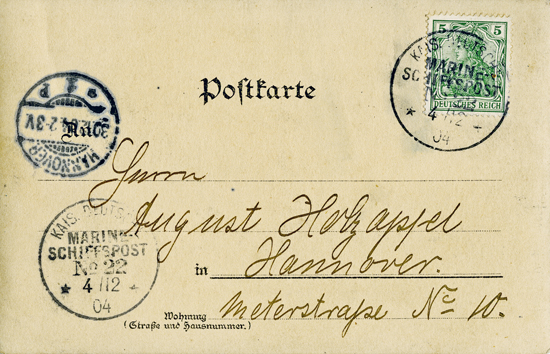 5 5
DEUTSCHES REICH
KAIS. DEUTSCHE
MARINE-
SCHIFFSPOST
4 /12
04
Postkarte
An
HANNOVER
2-3V
Herrn
August Holzapfel
in Hannover.
Wohnung
(Straße und Hausnummer.)
Meterstraße No 10.
KAIS. DEUTSCHE
MARINE-
SCHIFFSPOST
No 22
4 /12
04